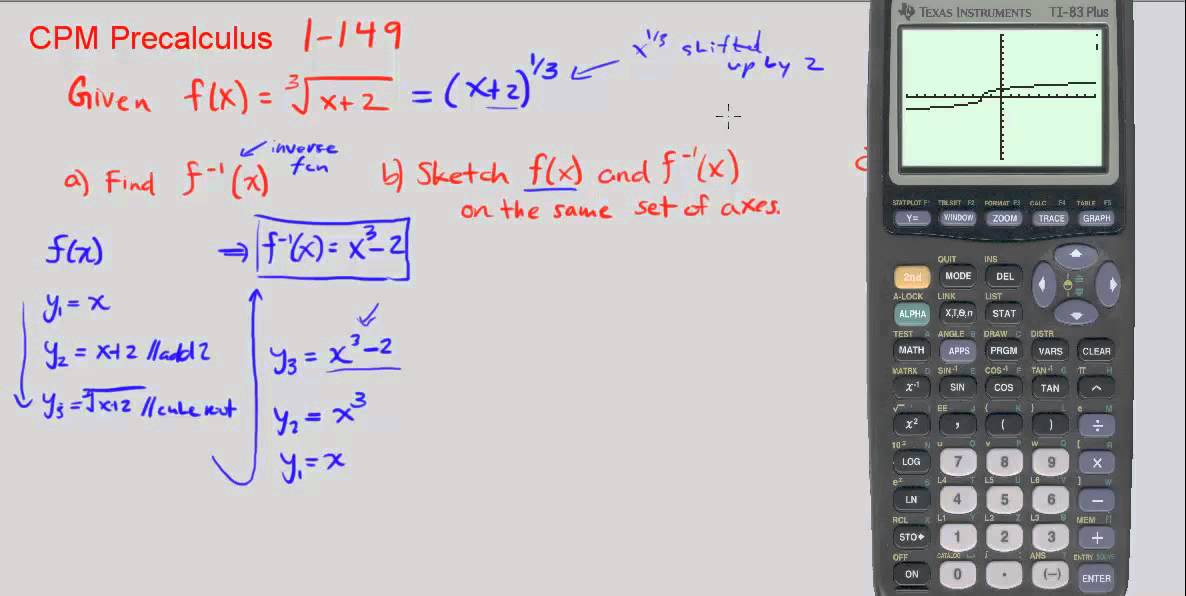 CPM Precalculus 1-149
x^1/3 shifted
up by 2
Given f(x) = ∛x+2 = (x+2)^1/3
inverse
fcn
a) Find f⁻¹(x)
b) Sketch f(x) and f⁻¹(x)
on the same set of axes.
f(x)
⇒ f⁻¹(x) = x³-2
y₁ = x
y₂ = x+2 //add 2
y₃ = ∛x+2 //cube root
y₃ = x³-2
y₂ = x³
y₁ = x
TEXAS INSTRUMENTS TI-83 Plus
STAT PLOT F1 TBLSET F2 FORMAT F3 CALC F4 TABLE F5
Y= WINDOW ZOOM TRACE GRAPH
QUIT INS
2nd MODE DEL
A-LOCK LINK LIST
ALPHA X,T,Θ,n STAT
TEST A ANGLE B DRAW C DISTR
MATH APPS PRGM VARS CLEAR
MATRX D SIN⁻¹ E COS⁻¹ F TAN⁻¹ G π H
x⁻¹ SIN COS TAN ^
√ I EE J { K } L e M
x² , ( ) ÷
10ˣ N u O v P w Q [ R
LOG 7 8 9 ×
eˣ S L4 T L5 U L6 V ] W
LN 4 5 6 −
RCL X L1 Y L2 Z L3 θ MEM "
STO▸ 1 2 3 +
OFF CATALOG i ANS ? ENTRY SOLVE
ON 0 . (−) ENTER